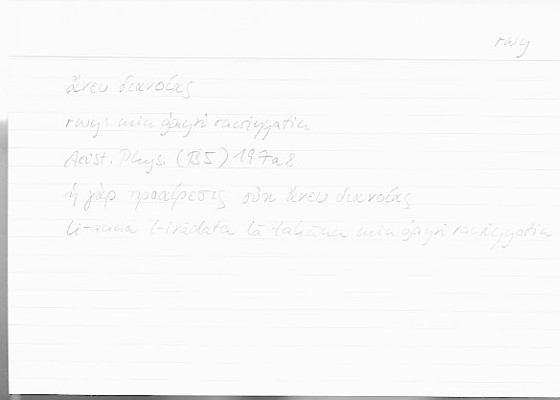 rwy
ἄνευ διανοίας
rwy: min ġayri rawiyyatin
Arist. Phys. (B5) 197a8
ἡ γὰρ προαίρεσις οὐκ ἄνευ διανοίας
li-anna l-irādata lā takūnu min ġayri rawiyyatin